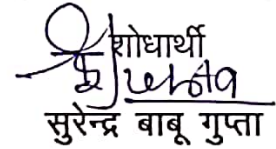 शोधार्थी
सुरेन्द्र बाबू गुप्ता